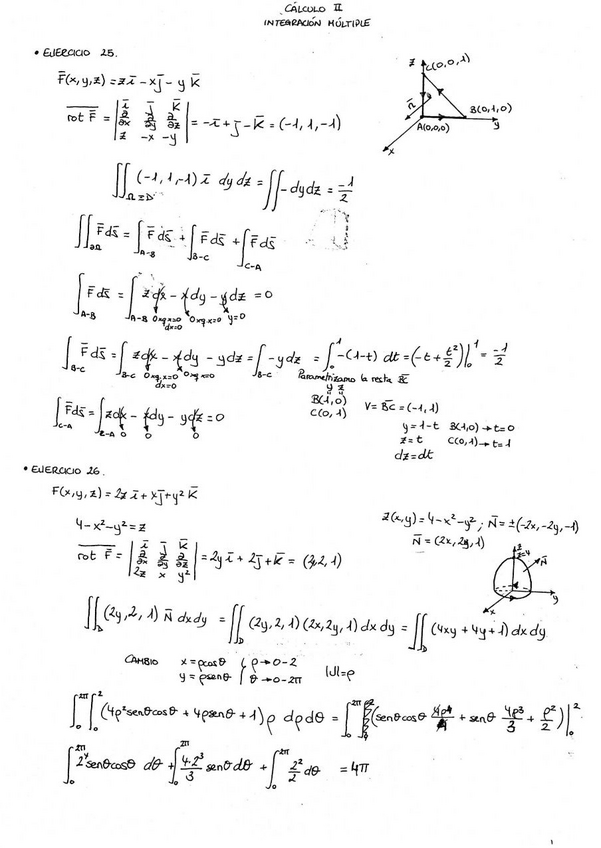 CÁLCULO II
INTEGRACIÓN MÚLTIPLE
• EJERCICIO 25.
F̄(x,y,z) = z ī - x j̄ - y k̄
rot F̄ = | ī j̄ k̄ ; ∂/∂x ∂/∂y ∂/∂z ; z -x -y | = -ī + j̄ - k̄ = (-1, 1, -1)
z C(0,0,1)
n̄
B(0,1,0)
A(0,0,0) y
x
∬_{Ω≡D} (-1,1,-1) ī dy dz = ∬ -dy dz = -1/2
∬_{∂Ω} F̄ ds̄ = ∫_{A-B} F̄ ds̄ + ∫_{B-C} F̄ ds̄ + ∫_{C-A} F̄ ds̄
∫_{A-B} F̄ ds̄ = ∫_{A-B} z dx - x dy - y dz = 0
0 xq. x=0 dx=0 0 xq. x=0 y=0
∫_{B-C} F̄ ds̄ = ∫_{B-C} z dx - x dy - y dz = ∫_{B-C} -y dz = ∫_0^1 -(1-t) dt = (-t + t²/2)|_0^1 = -1/2
0 xq. x=0 dx=0 0 xq. x=0 Parametrizamo la resta BC
y z
B(1,0) V = BC = (-1,1)
C(0,1)
y = 1-t B(1,0) → t=0
z = t C(0,1) → t=1
dz = dt
∫_{C-A} F̄ ds̄ = ∫_{C-A} z dx - x dy - y dz = 0
0 0 0
• EJERCICIO 26.
F(x,y,z) = 2z ī + x j̄ + y² k̄
4 - x² - y² = z
z(x,y) = 4 - x² - y² ; N̄ = ±(-2x, -2y, -1)
N̄ = (2x, 2y, 1)
rot F̄ = | ī j̄ k̄ ; ∂/∂x ∂/∂y ∂/∂z ; 2z x y² | = 2y ī + 2 j̄ + k̄ = (2, 2, 1)
z
z=4
N̄
x y
∬_D (2y, 2, 1) N̄ dx dy = ∬_D (2y, 2, 1)(2x, 2y, 1) dx dy = ∬_D (4xy + 4y + 1) dx dy
CAMBIO x = ρcosθ { ρ → 0-2
y = ρsenθ { θ → 0-2π |J| = ρ
∫_0^{2π} ∫_0^2 (4ρ² senθ cosθ + 4ρ senθ + 1) ρ dρ dθ = ∫_0^{2π} (senθ cosθ 4ρ⁴/4 + senθ 4ρ³/3 + ρ²/2)|_0^2
∫_0^{2π} 2⁴ senθ cosθ dθ + ∫_0^{2π} 4·2³/3 senθ dθ + ∫_0^{2π} 2²/2 dθ = 4π
1